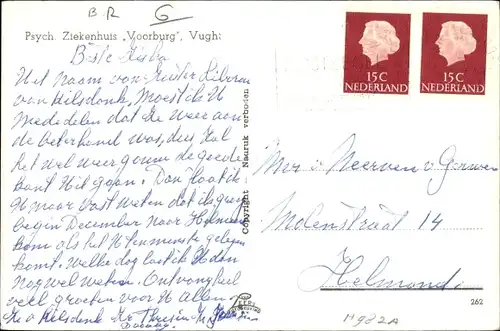 BR 6
Psych. Ziekenhuis „Voorburg", Vught
Beste
Uit naam van Zuster
van Hilsdonk, Moest ik U
Mededelen dat ze weer aan
de beterhand was, dus zal
het wel weer gauw de goede
kant Uit gaan. Dan laat ik
U maar vast weten dat ik
begin December naar Helmond
kom als het U tenminste gelegen
komt. Welke dag laat ik U dan
nog wel weten. Ontvang heel
veel groeten voor U Allen
15 C
NEDERLAND
15 C
NEDERLAND
Copyright - Nadruk verboden
Molenstraat 14
Helmond
262
M982A